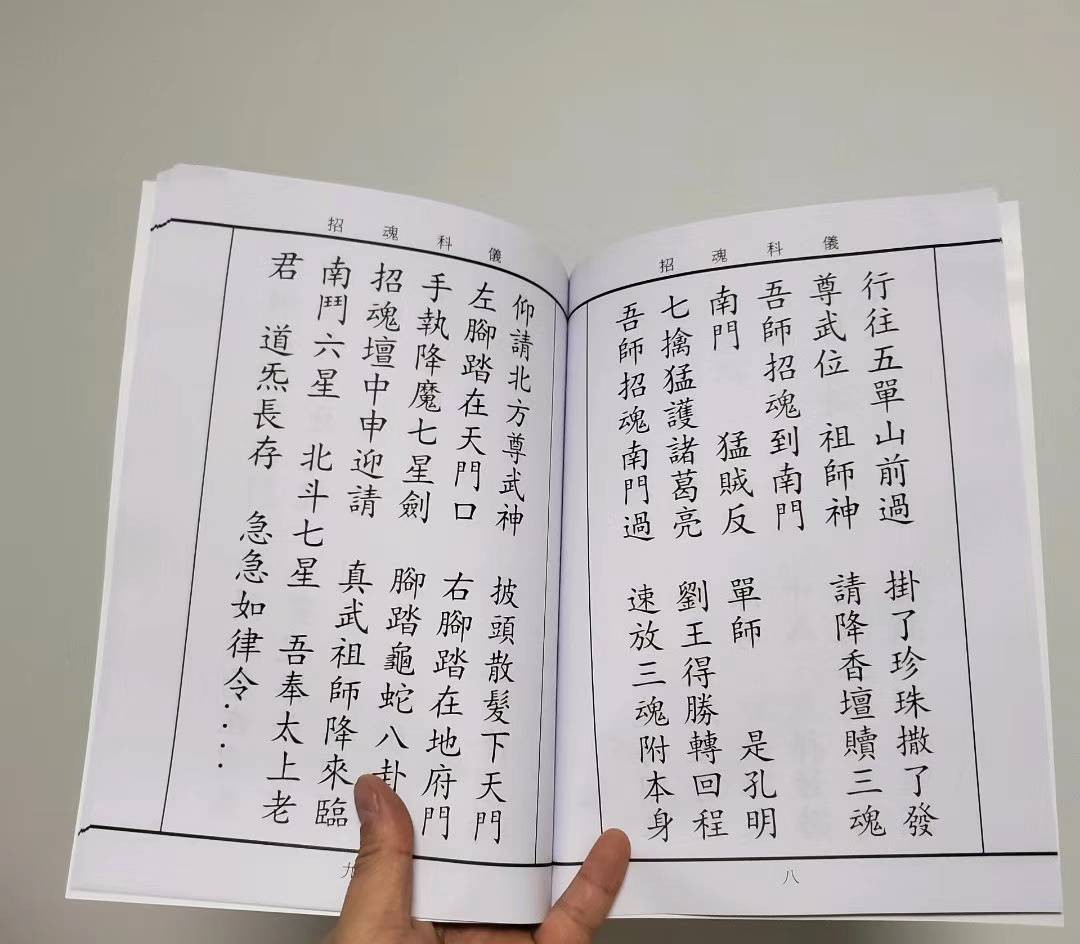 招魂科儀
行往五單山前過　掛了珍珠撒了發
尊武位　祖師神　請降香壇贖三魂
吾師招魂到南門
南門　猛賊反　單師　是孔明
七擒猛護諸葛亮　劉王得勝轉回程
吾師招魂南門過　速放三魂附本身
八
招魂科儀
仰請北方尊武神　披頭散髮下天門
左腳踏在天門口　右腳踏在地府門
手執降魔七星劍　腳踏龜蛇八卦
招魂壇中申迎請　真武祖師降來臨
南鬥六星　北斗七星　吾奉太上老
君　道炁長存　急急如律令．．．．
九